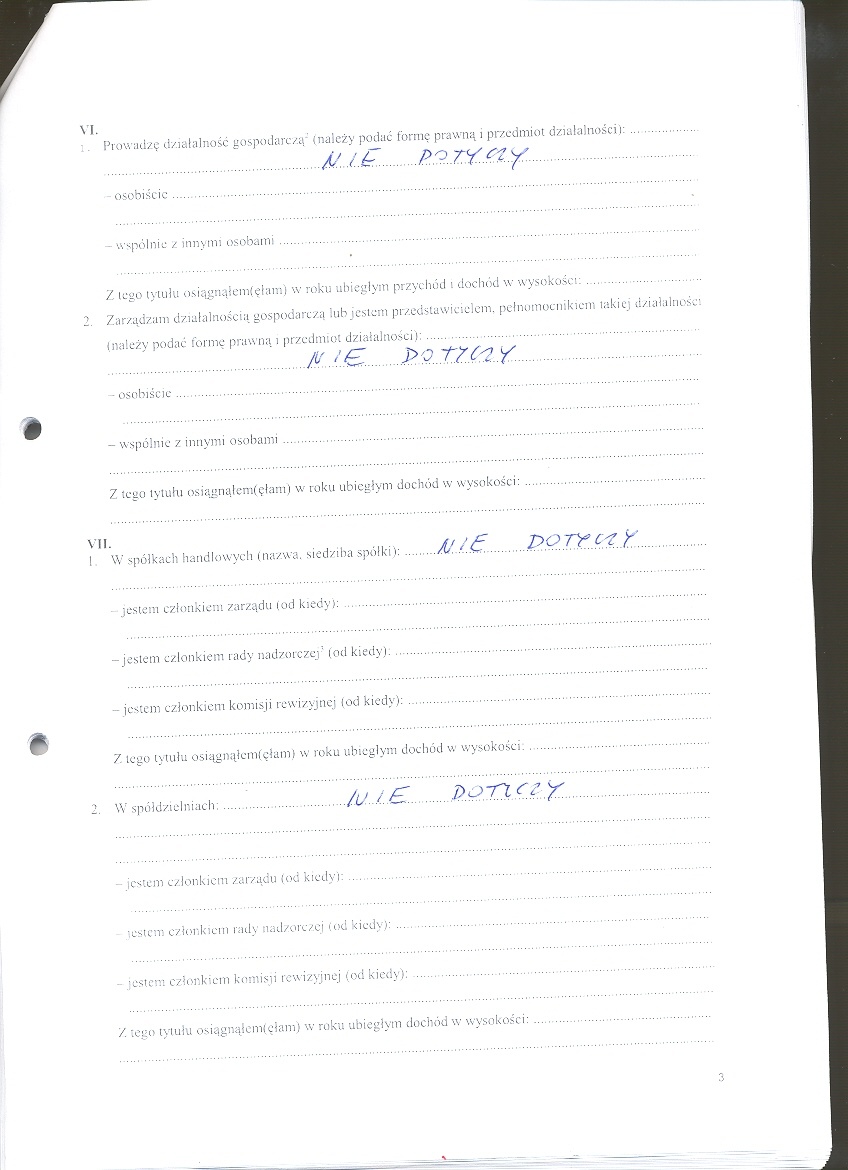 VI.
1. Prowadzę działalność gospodarczą² (należy podać formę prawną i przedmiot działalności): ....................
NIE DOTYCZY
– osobiście ....................
– wspólnie z innymi osobami ....................
Z tego tytułu osiągnąłem(ęłam) w roku ubiegłym przychód i dochód w wysokości: ....................
2. Zarządzam działalnością gospodarczą lub jestem przedstawicielem, pełnomocnikiem takiej działalności
(należy podać formę prawną i przedmiot działalności): ....................
NIE DOTYCZY
– osobiście ....................
– wspólnie z innymi osobami ....................
Z tego tytułu osiągnąłem(ęłam) w roku ubiegłym dochód w wysokości: ....................
VII.
1. W spółkach handlowych (nazwa, siedziba spółki): .......... NIE DOTYCZY ..........
– jestem członkiem zarządu (od kiedy): ....................
– jestem członkiem rady nadzorczej³ (od kiedy): ....................
– jestem członkiem komisji rewizyjnej (od kiedy): ....................
Z tego tytułu osiągnąłem(ęłam) w roku ubiegłym dochód w wysokości: ....................
2. W spółdzielniach: .......... NIE DOTYCZY ..........
– jestem członkiem zarządu (od kiedy): ....................
– jestem członkiem rady nadzorczej (od kiedy): ....................
– jestem członkiem komisji rewizyjnej (od kiedy): ....................
Z tego tytułu osiągnąłem(ęłam) w roku ubiegłym dochód w wysokości: ....................
3